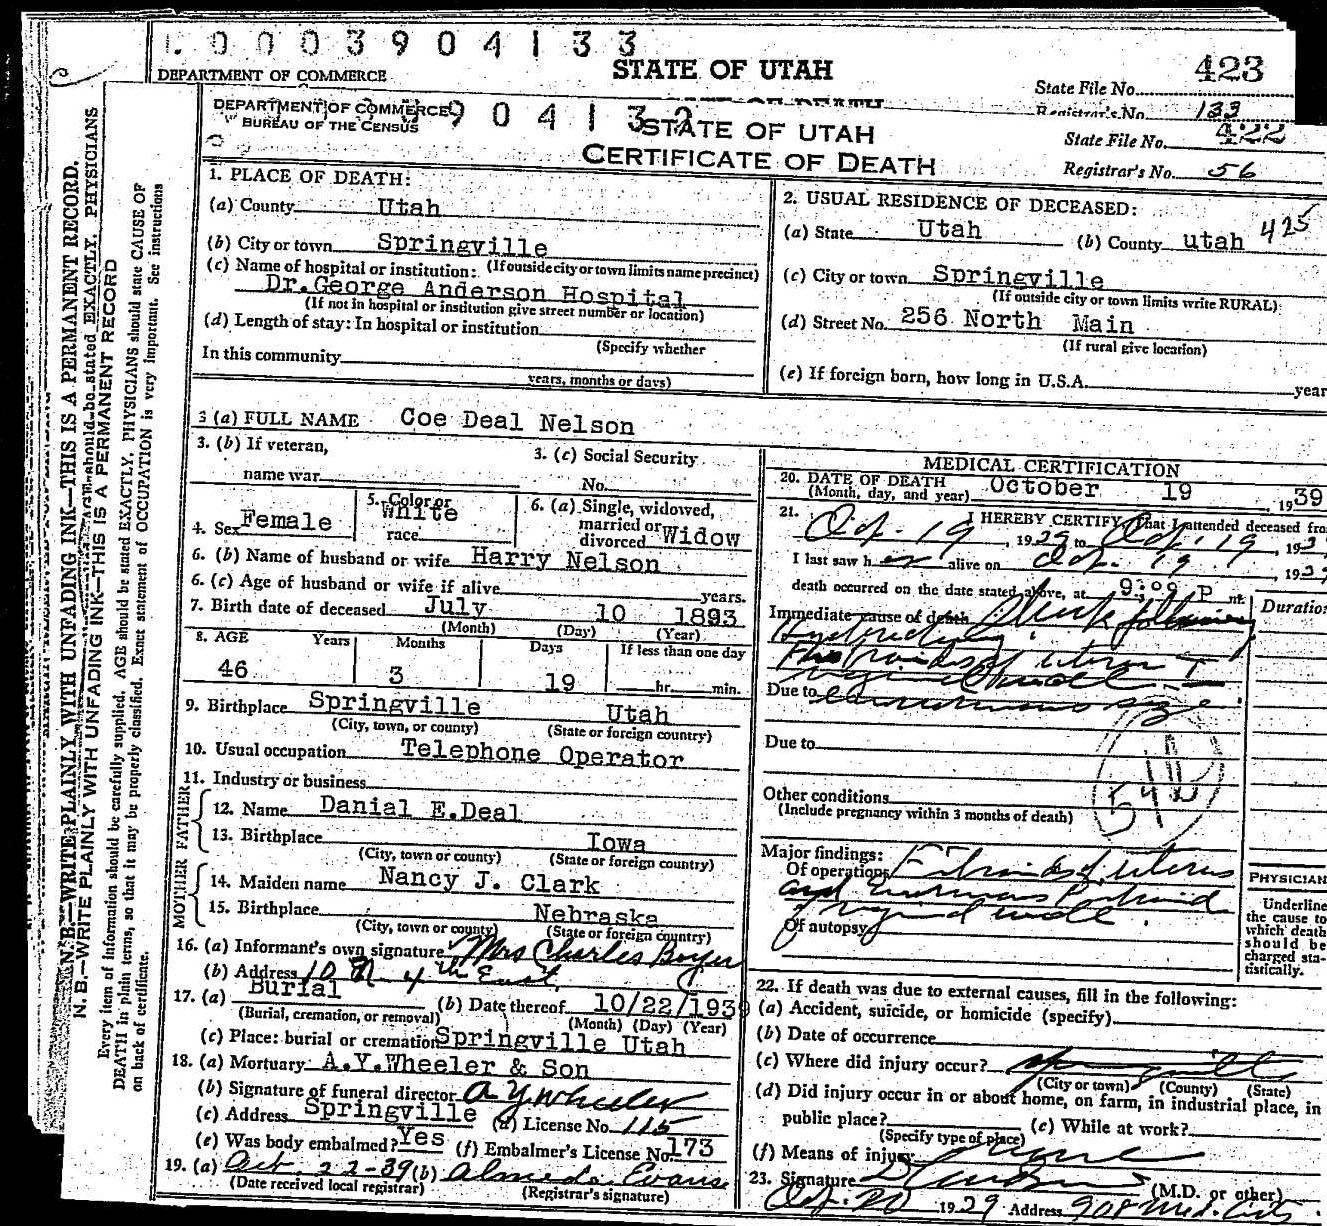 1.0003904133
STATE OF UTAH
423
DEPARTMENT OF COMMERCE
State File No.
Registrar's No. 133
DEPARTMENT OF COMMERCE
BUREAU OF THE CENSUS
904132
STATE OF UTAH
CERTIFICATE OF DEATH
State File No. 422
Registrar's No. 56
N. B.—WRITE PLAINLY WITH UNFADING INK—THIS IS A PERMANENT RECORD.
N. B.—WRITE PLAINLY WITH UNFADING INK—THIS IS A PERMANENT RECORD
Every item of information should be carefully supplied. AGE should be stated EXACTLY. PHYSICIANS should state CAUSE OF
DEATH in plain terms, so that it may be properly classified. Exact statement of OCCUPATION is very important. See instructions
on back of certificate.
1. PLACE OF DEATH:
(a) County Utah
(b) City or town Springville
(If outside city or town limits name precinct)
(c) Name of hospital or institution:
Dr. George Anderson Hospital
(If not in hospital or institution give street number or location)
(d) Length of stay: In hospital or institution
(Specify whether
In this community
years, months or days)
2. USUAL RESIDENCE OF DECEASED:
(a) State Utah (b) County utah 425
(c) City or town Springville
(If outside city or town limits write RURAL)
(d) Street No. 256 North Main
(If rural give location)
(e) If foreign born, how long in U.S.A. year
3 (a) FULL NAME Coe Deal Nelson
3. (b) If veteran,
name war
3. (c) Social Security
No.
4. Sex Female
5. Color or
race White
6. (a) Single, widowed,
married or
divorced Widow
6. (b) Name of husband or wife Harry Nelson
6. (c) Age of husband or wife if alive years.
7. Birth date of deceased July 10 1893
(Month) (Day) (Year)
8. AGE Years Months Days If less than one day
46 3 19 hr. min.
9. Birthplace Springville Utah
(City, town, or county) (State or foreign country)
10. Usual occupation Telephone Operator
11. Industry or business
FATHER
12. Name Danial E.Deal
13. Birthplace Iowa
(City, town or county) (State or foreign country)
MOTHER
14. Maiden name Nancy J. Clark
15. Birthplace Nebraska
(City, town or county) (State or foreign country)
16. (a) Informant's own signature Mrs Charles Boyer
(b) Address 10 N 4th East
17. (a) Burial (b) Date thereof 10/22/1939
(Burial, cremation, or removal) (Month) (Day) (Year)
(c) Place: burial or cremation Springville Utah
18. (a) Mortuary A.Y.Wheeler & Son
(b) Signature of funeral director A Y Wheeler
(c) Address Springville (d) License No. 115
(e) Was body embalmed? Yes (f) Embalmer's License No. 173
19. (a) Oct. 22-39 (b) Almeda Evans
(Date received local registrar) (Registrar's signature)
MEDICAL CERTIFICATION
20. DATE OF DEATH
(Month, day, and year) October 19, 1939
21. I HEREBY CERTIFY, That I attended deceased fro
Oct. 19, 1939 to Oct. 19, 193
I last saw her alive on Oct. 19, 193
death occurred on the date stated above, at 9:09 P m.
Immediate cause of death Shock following
Hysterectomy
Fibroids of uterus +
vaginal wall
Due to enormous size
Duration
Due to
Other conditions
(Include pregnancy within 3 months of death)
54b
Major findings:
Of operations Fibroids of uterus
and enormous fibroid
of vaginal wall.
Of autopsy
PHYSICIAN
Underline
the cause to
which death
should be
charged sta-
tistically.
22. If death was due to external causes, fill in the following:
(a) Accident, suicide, or homicide (specify)
(b) Date of occurrence
(c) Where did injury occur? Springville
(City or town) (County) (State)
(d) Did injury occur in or about home, on farm, in industrial place, in
public place? (e) While at work?
(Specify type of place)
(f) Means of injury
23. Signature (M.D. or other)
Oct. 20 1939 Address 908 Med. Arts